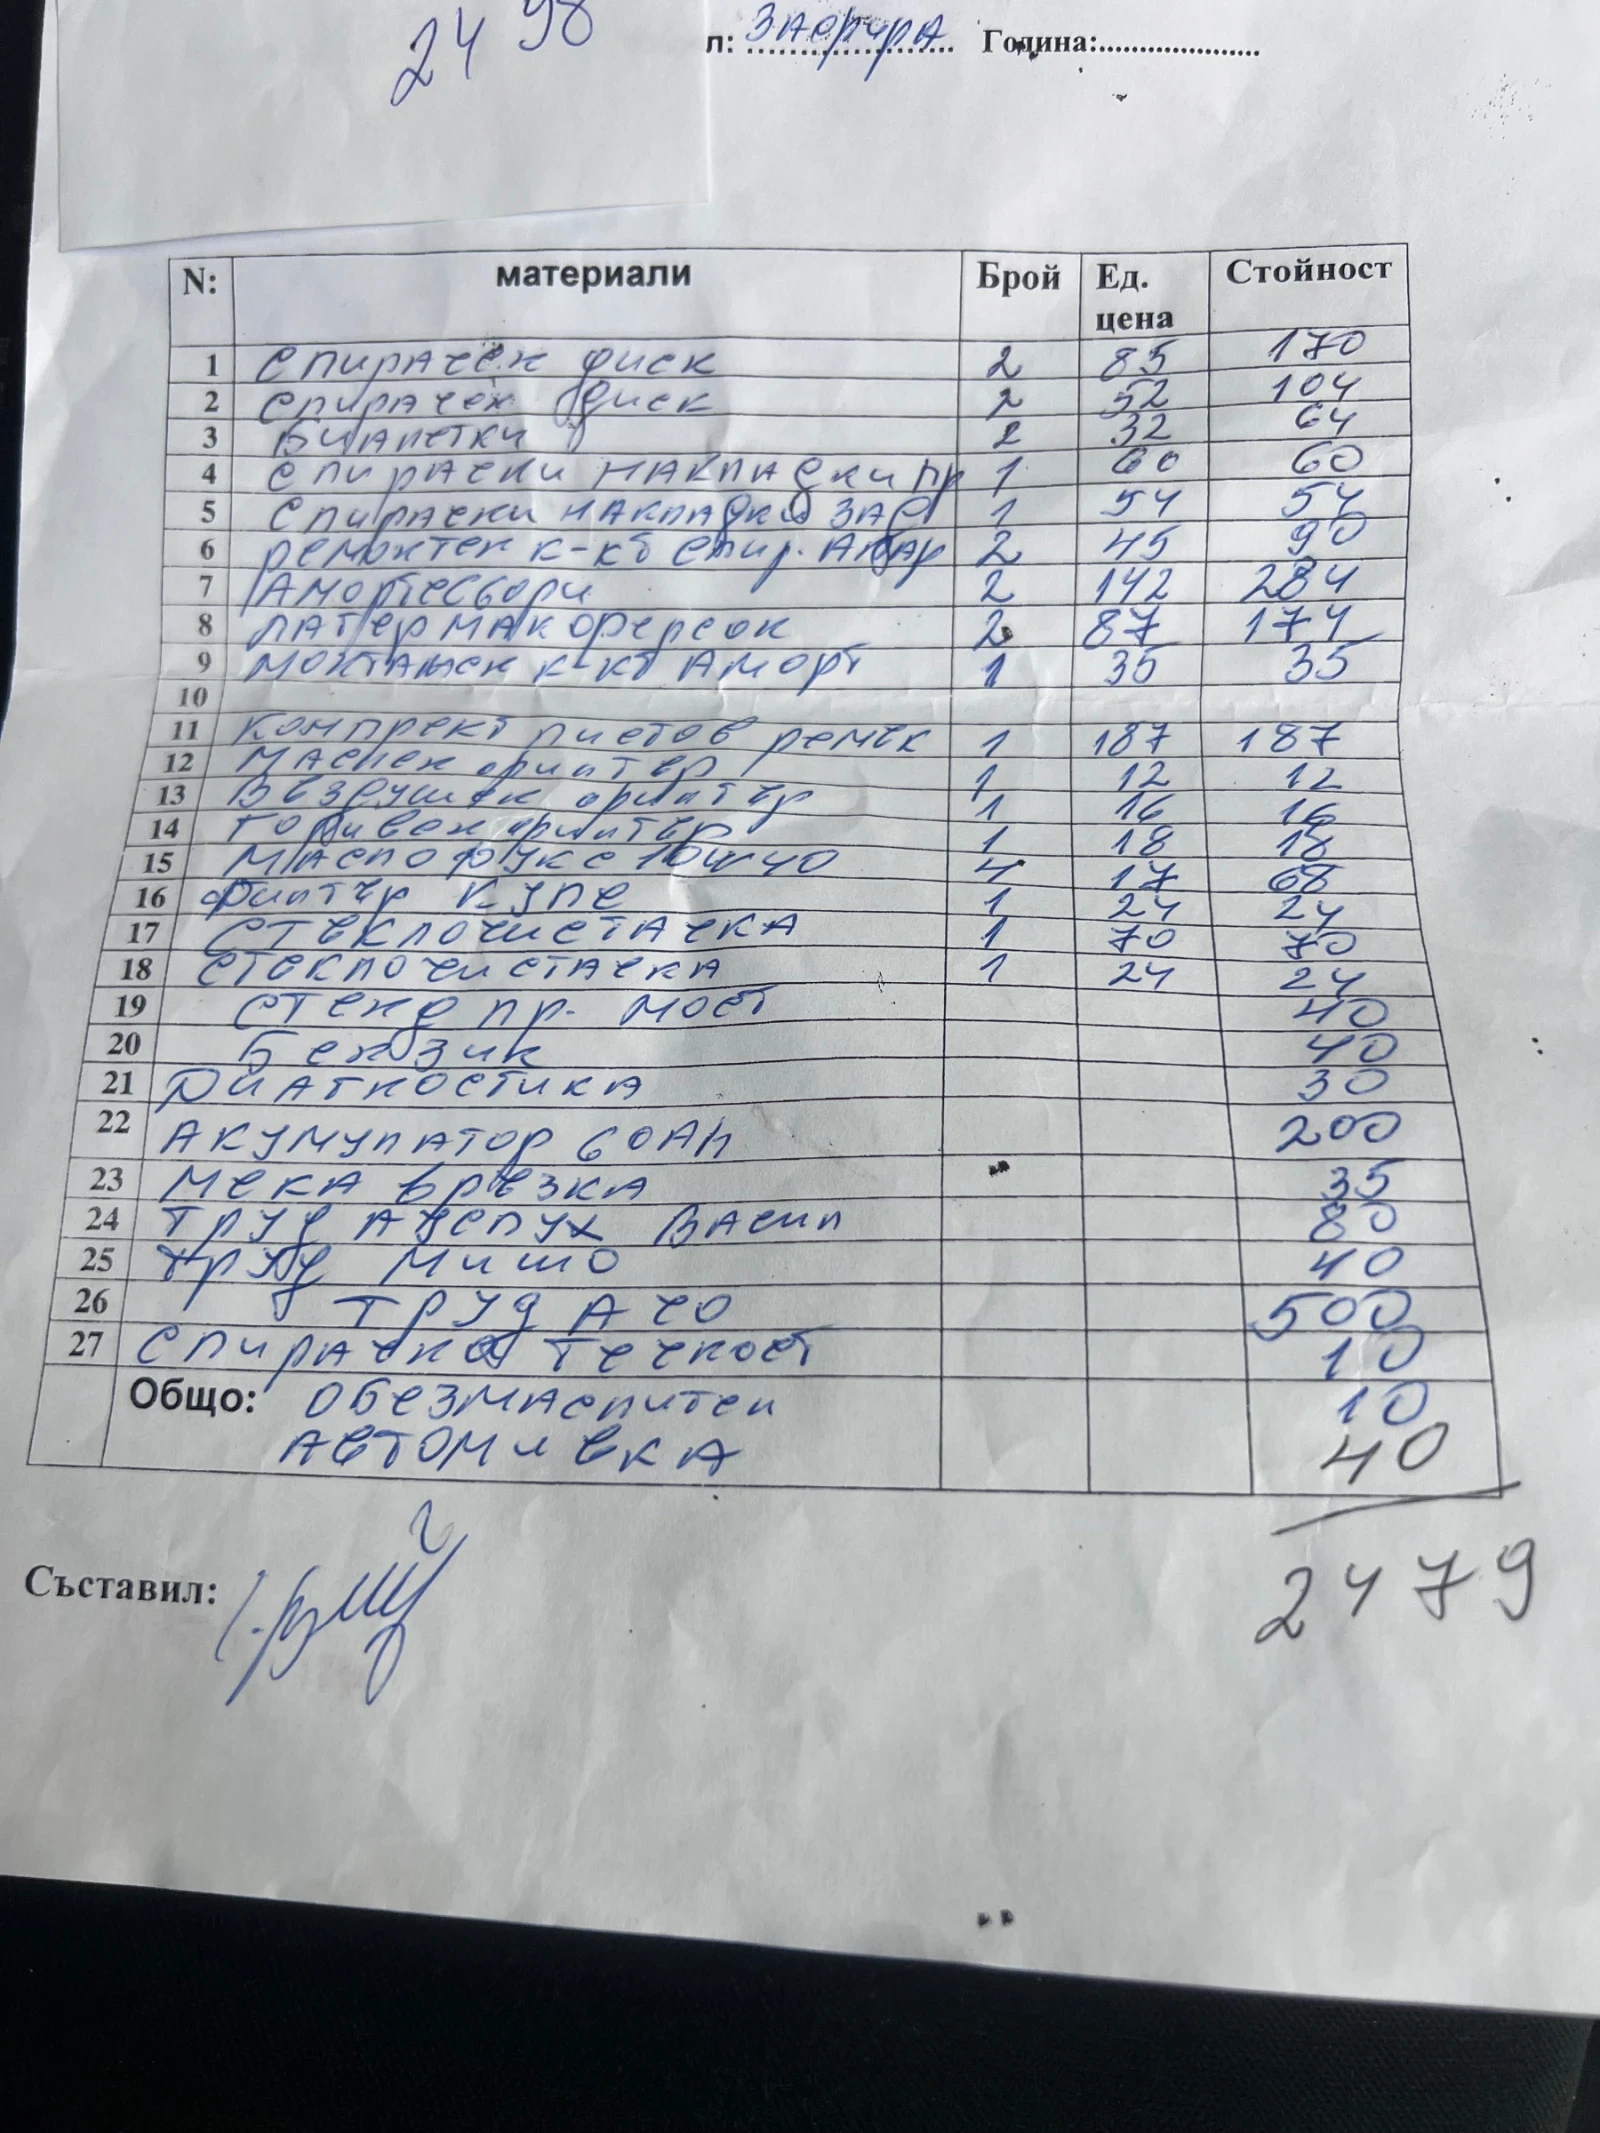 2498
л: Зафира Година:
N: материали Брой Ед. цена Стойност
1 Спирачен диск 2 85 170
2 Спирачен диск 2 52 104
3 Биалетки 2 32 64
4 Спирачни накладки пр 1 60 60
5 Спирачни накладки зад 1 54 54
6 ремонтен к-кт спир. Апар 2 45 90
7 Амортесьори 2 142 284
8 лагер макферсон 2 87 174
9 монтажен к-кт Аморт 1 35 35
10
11 Комплект пистов ремък 1 187 187
12 Маслен филтър 1 12 12
13 Въздушен филтър 1 16 16
14 Горивен филтър 1 18 18
15 Масло фукс 10W40 4 17 68
16 Филтър купе 1 24 24
17 Стеклочистачка 1 70 70
18 Стеклочистачка 1 24 24
19 Стенд пр. мост 40
20 Бензин 40
21 Диагностика 30
22 Акумулатор 60Ah 200
23 Мека връзка 35
24 Труд Ауспух Васил 80
25 труд Мишо 40
26 труд Ачо 500
27 Спирачна течност 10
Общо: Обезмаслител 10
Автомивка 40
2479
Съставил: